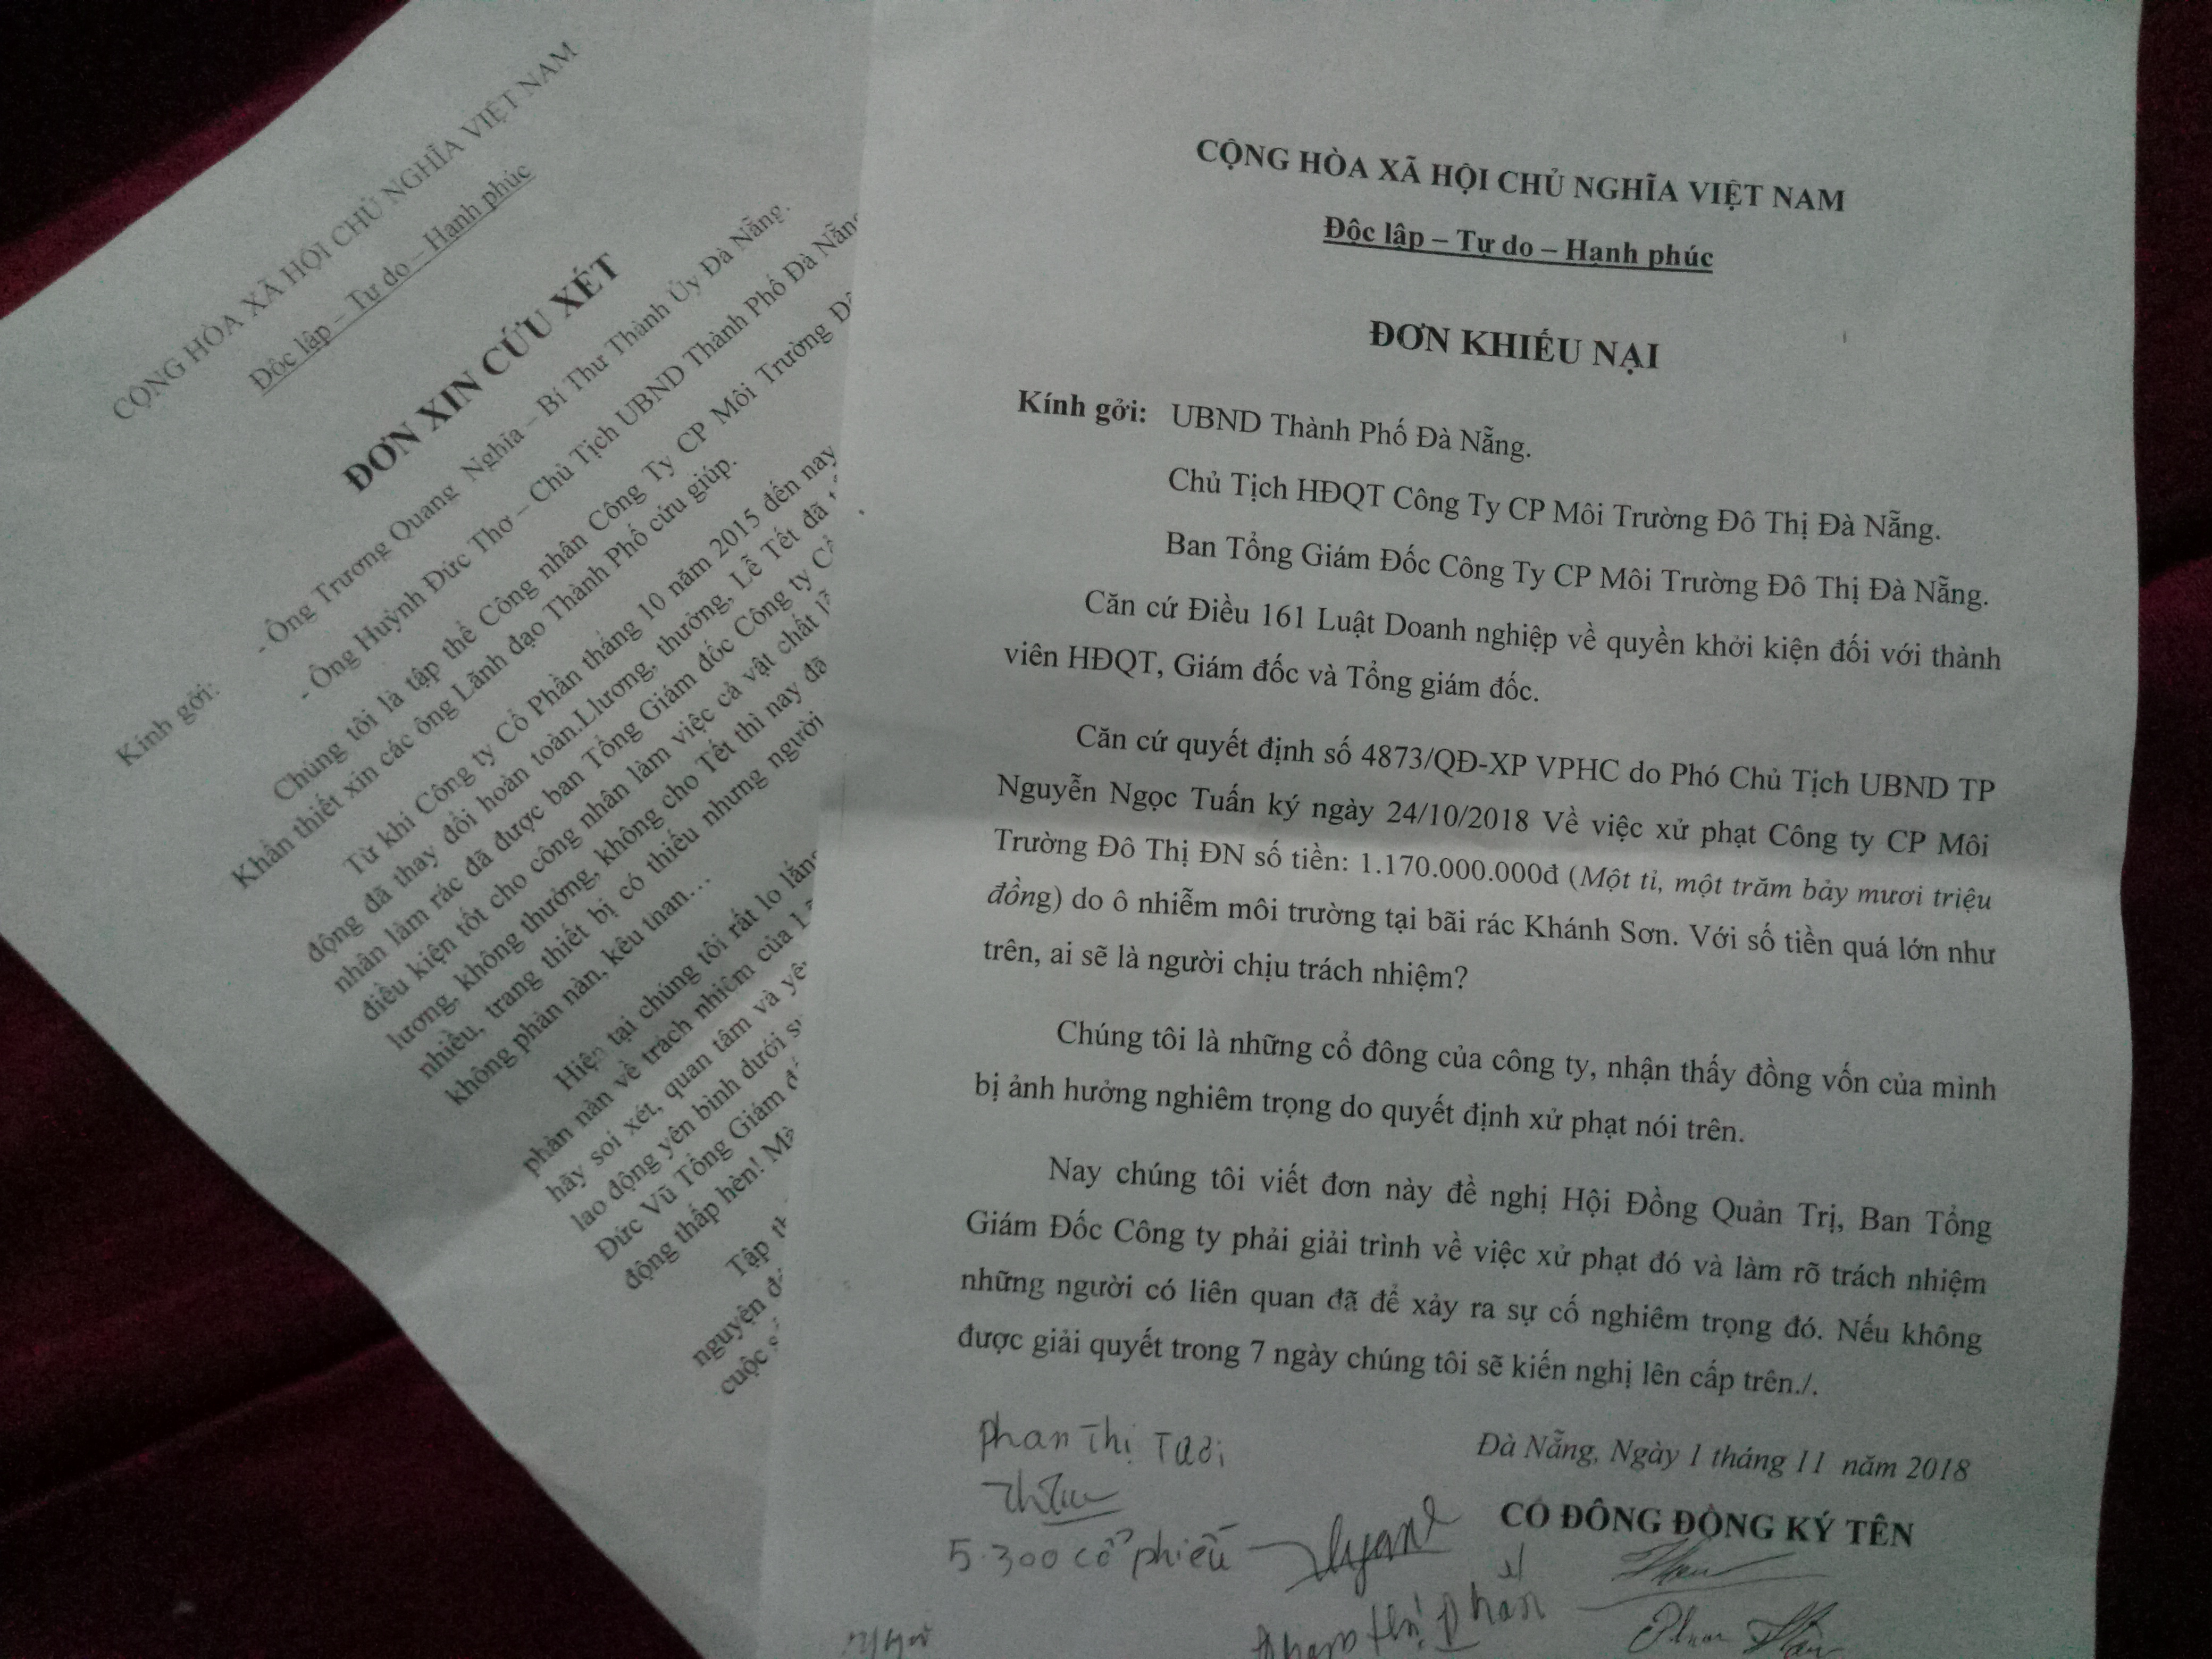 CỘNG HÒA XÃ HỘI CHỦ NGHĨA VIỆT NAM
Độc lập – Tự do – Hạnh phúc
ĐƠN XIN CỨU XÉT
Kính gởi:
- Ông Trương Quang Nghĩa – Bí Thư Thành Ủy Đà Nẵng.
- Ông Huỳnh Đức Thơ – Chủ Tịch UBND Thành Phố Đà Nẵng
Chúng tôi là tập thể Công nhân Công Ty CP Môi Trường
Khẩn thiết xin các ông Lãnh đạo Thành Phố cứu giúp.
Từ khi Công ty Cổ Phần tháng 10 năm 2015 đến nay
động đã thay đổi hoàn toàn.Llương, thưởng, Lễ Tết đã
nhân làm rác đã được ban Tổng Giám đốc Công ty
điều kiện tốt cho công nhân làm việc cả vật chất
lương, không thưởng, không cho Tết thì nay đã
nhiều, trang thiết bị có thiếu nhưng người
không phản nàn, kêu than…
Hiện tại chúng tôi rất lo lắng
phản nàn về trách nhiệm của
hãy soi xét, quan tâm và
lao động yên bình dưới
Đức Vũ Tổng Giám
động thấp hèn!
Tập
nguyện
cuộc
CỘNG HÒA XÃ HỘI CHỦ NGHĨA VIỆT NAM
Độc lập – Tự do – Hạnh phúc
ĐƠN KHIẾU NẠI
Kính gởi: UBND Thành Phố Đà Nẵng.
Chủ Tịch HĐQT Công Ty CP Môi Trường Đô Thị Đà Nẵng.
Ban Tổng Giám Đốc Công Ty CP Môi Trường Đô Thị Đà Nẵng.
Căn cứ Điều 161 Luật Doanh nghiệp về quyền khởi kiện đối với thành
viên HĐQT, Giám đốc và Tổng giám đốc.
Căn cứ quyết định số 4873/QĐ-XP VPHC do Phó Chủ Tịch UBND TP
Nguyễn Ngọc Tuấn ký ngày 24/10/2018 Về việc xử phạt Công ty CP Môi
Trường Đô Thị ĐN số tiền: 1.170.000.000đ (Một tỉ, một trăm bảy mươi triệu
đồng) do ô nhiễm môi trường tại bãi rác Khánh Sơn. Với số tiền quá lớn như
trên, ai sẽ là người chịu trách nhiệm?
Chúng tôi là những cổ đông của công ty, nhận thấy đồng vốn của mình
bị ảnh hưởng nghiêm trọng do quyết định xử phạt nói trên.
Nay chúng tôi viết đơn này đề nghị Hội Đồng Quản Trị, Ban Tổng
Giám Đốc Công ty phải giải trình về việc xử phạt đó và làm rõ trách nhiệm
những người có liên quan đã để xảy ra sự cố nghiêm trọng đó. Nếu không
được giải quyết trong 7 ngày chúng tôi sẽ kiến nghị lên cấp trên./.
Đà Nẵng, Ngày 1 tháng 11 năm 2018
CỔ ĐÔNG ĐỒNG KÝ TÊN
Phan Thị
5.300 cổ phiếu